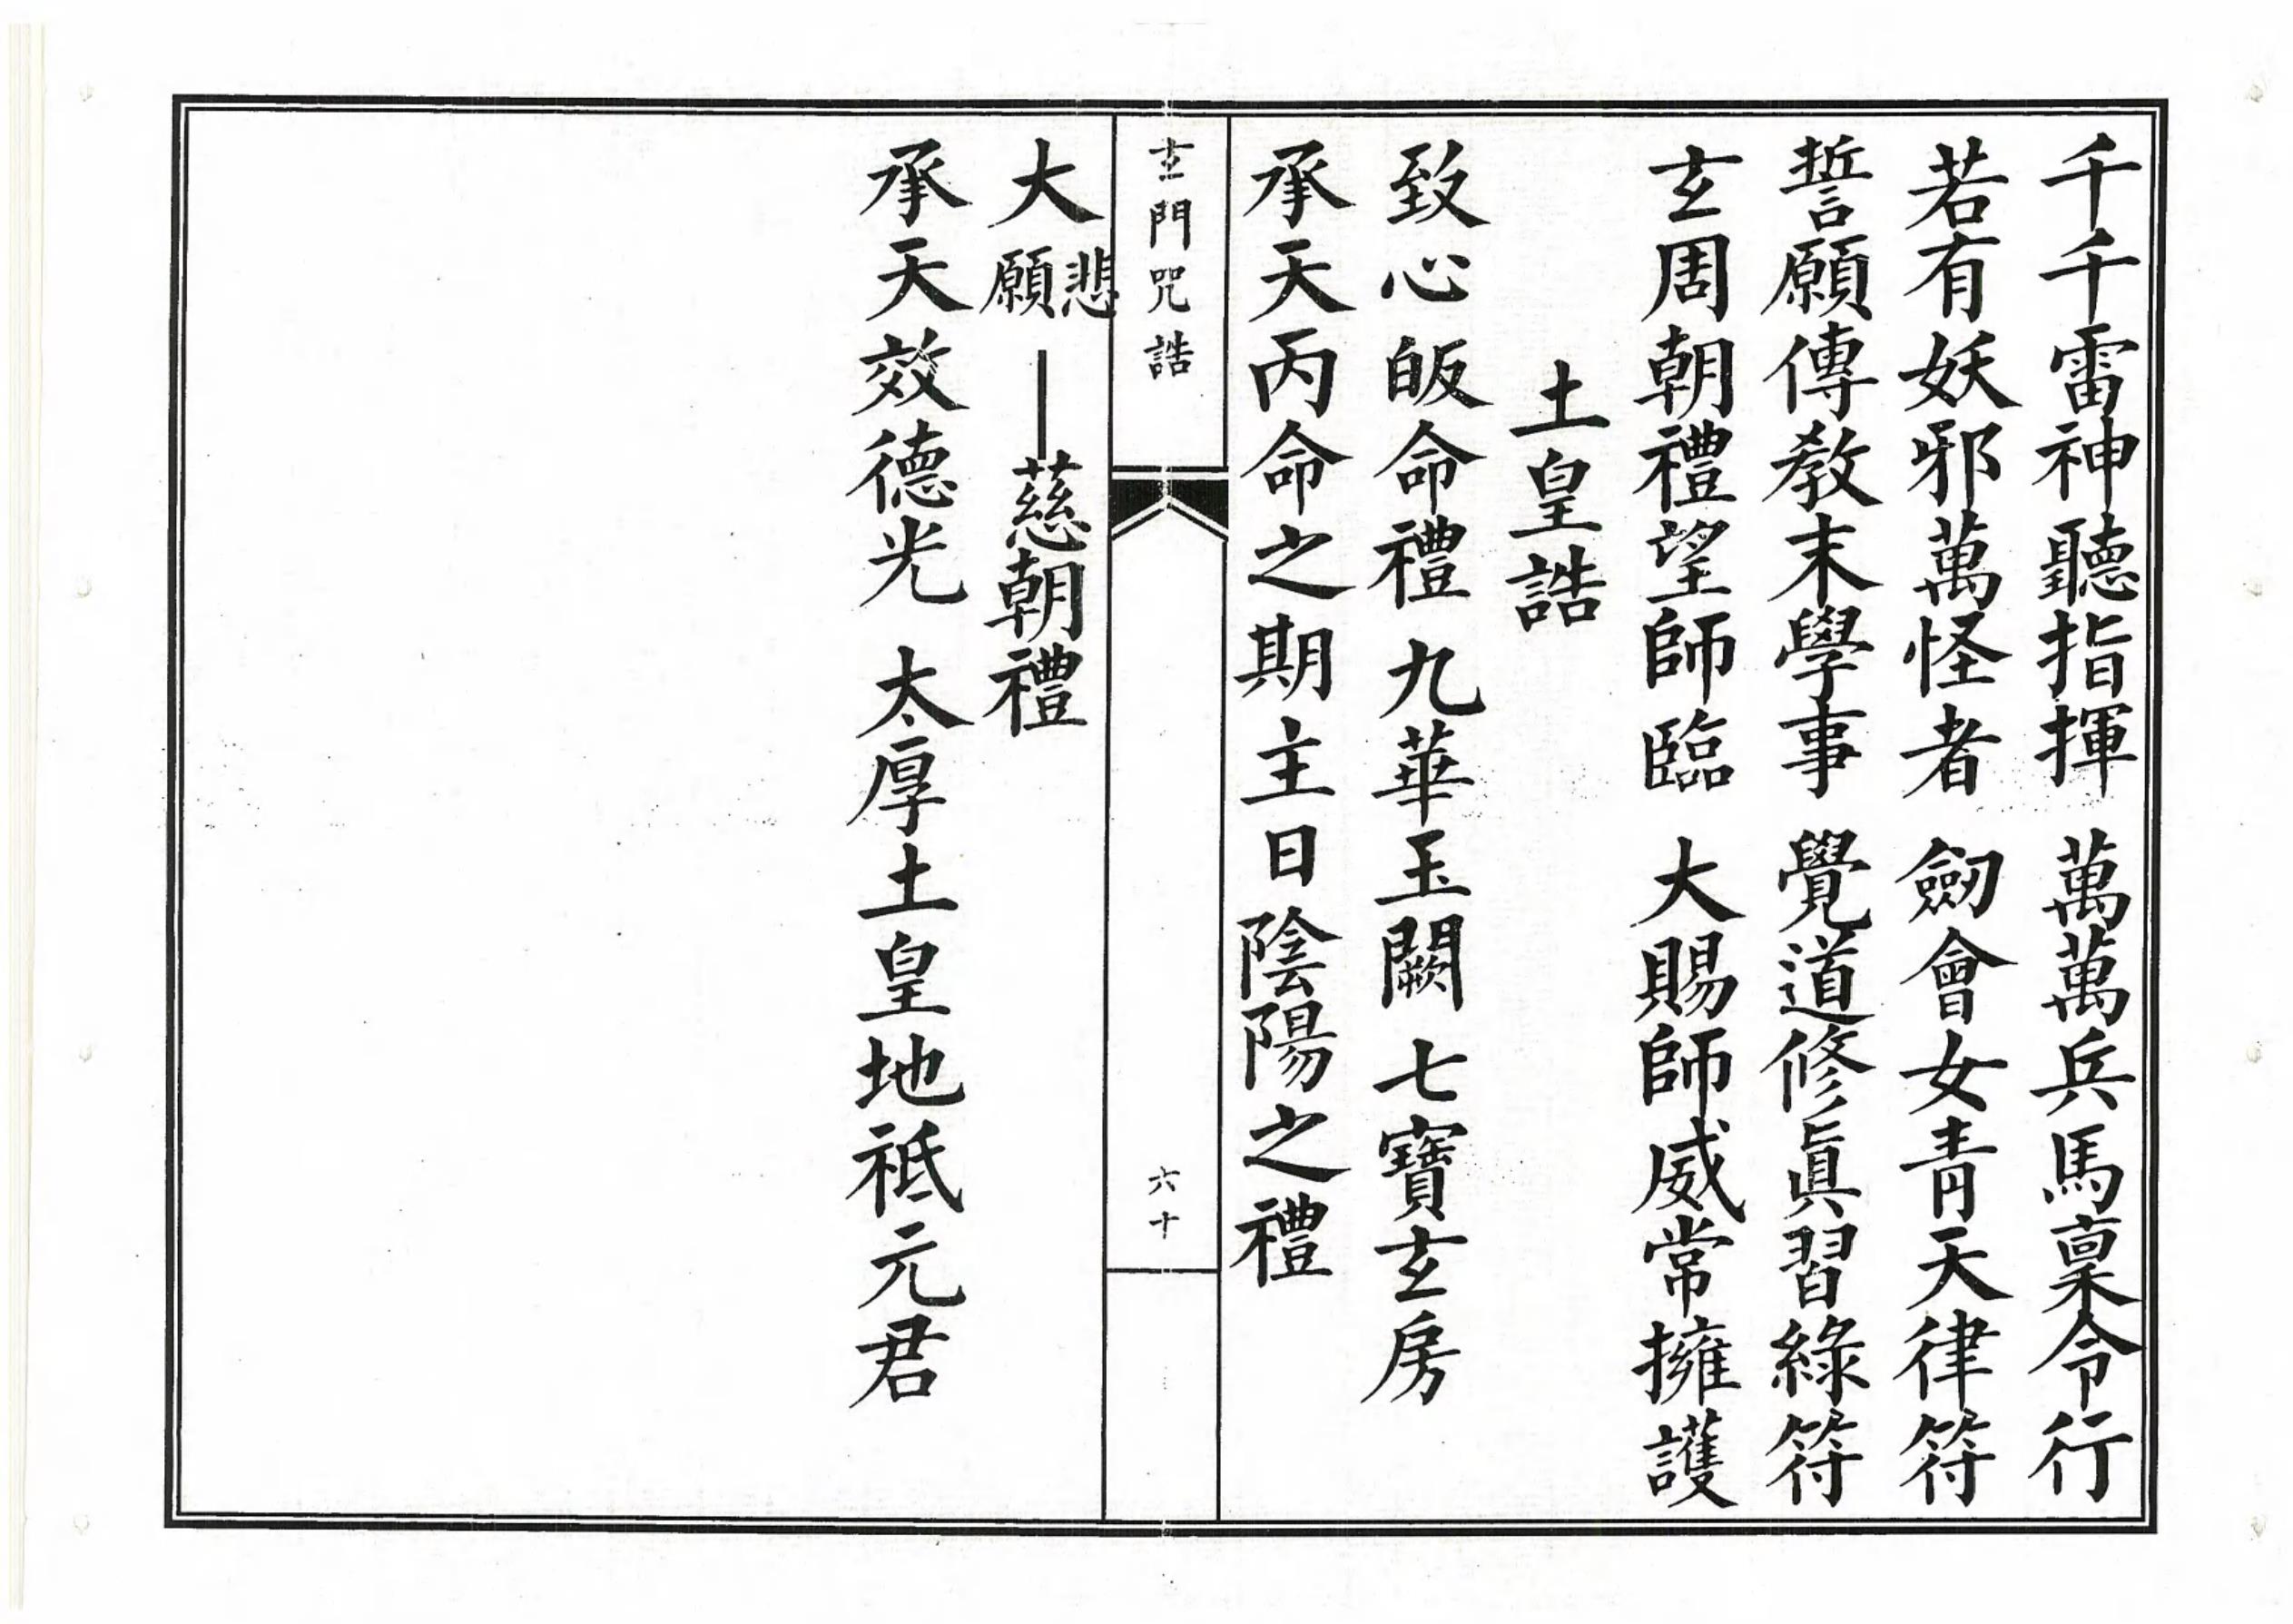 千千雷神聽指揮 萬萬兵馬稟令行
若有妖邪萬怪者 劒會女青天律符
誓願傳教末學事 覺道修眞習綠符
玄周朝禮望師臨 大賜師威常擁護
土皇誥
致心皈命禮 九華玉闕 七寶玄房
承天丙命之期主日陰陽之禮
玄門咒誥
六十
大悲願—慈朝禮
承天效德光 太厚土皇地祗元君